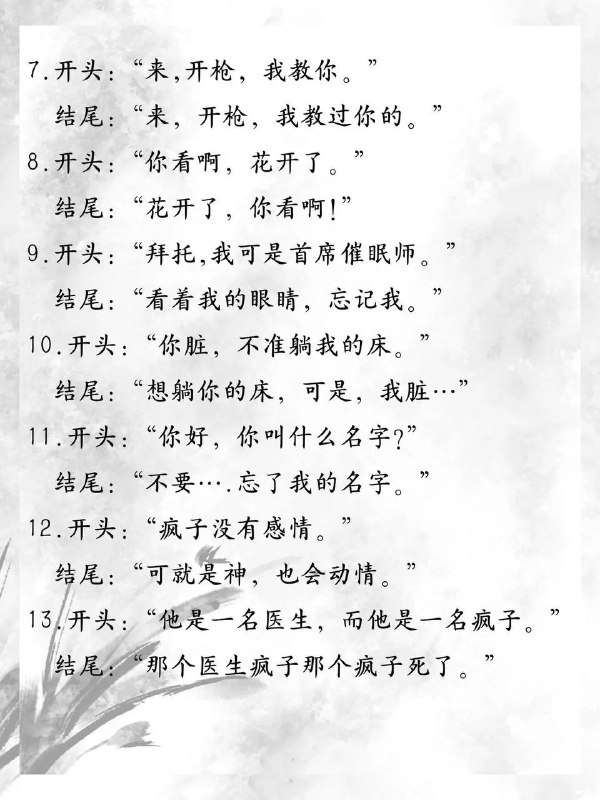 7.开头：“来,开枪，我教你。”
结尾：“来，开枪，我教过你的。”
8.开头：“你看啊，花开了。”
结尾：“花开了，你看啊!”
9.开头：“拜托,我可是首席催眠师。”
结尾：“看着我的眼睛，忘记我。”
10.开头：“你脏，不准躺我的床。”
结尾：“想躺你的床，可是，我脏…”
11.开头：“你好，你叫什么名字?”
结尾：“不要….忘了我的名字。”
12.开头：“疯子没有感情。”
结尾：“可就是神，也会动情。”
13.开头：“他是一名医生，而他是一名疯子。”
结尾：“那个医生疯子那个疯子死了。”